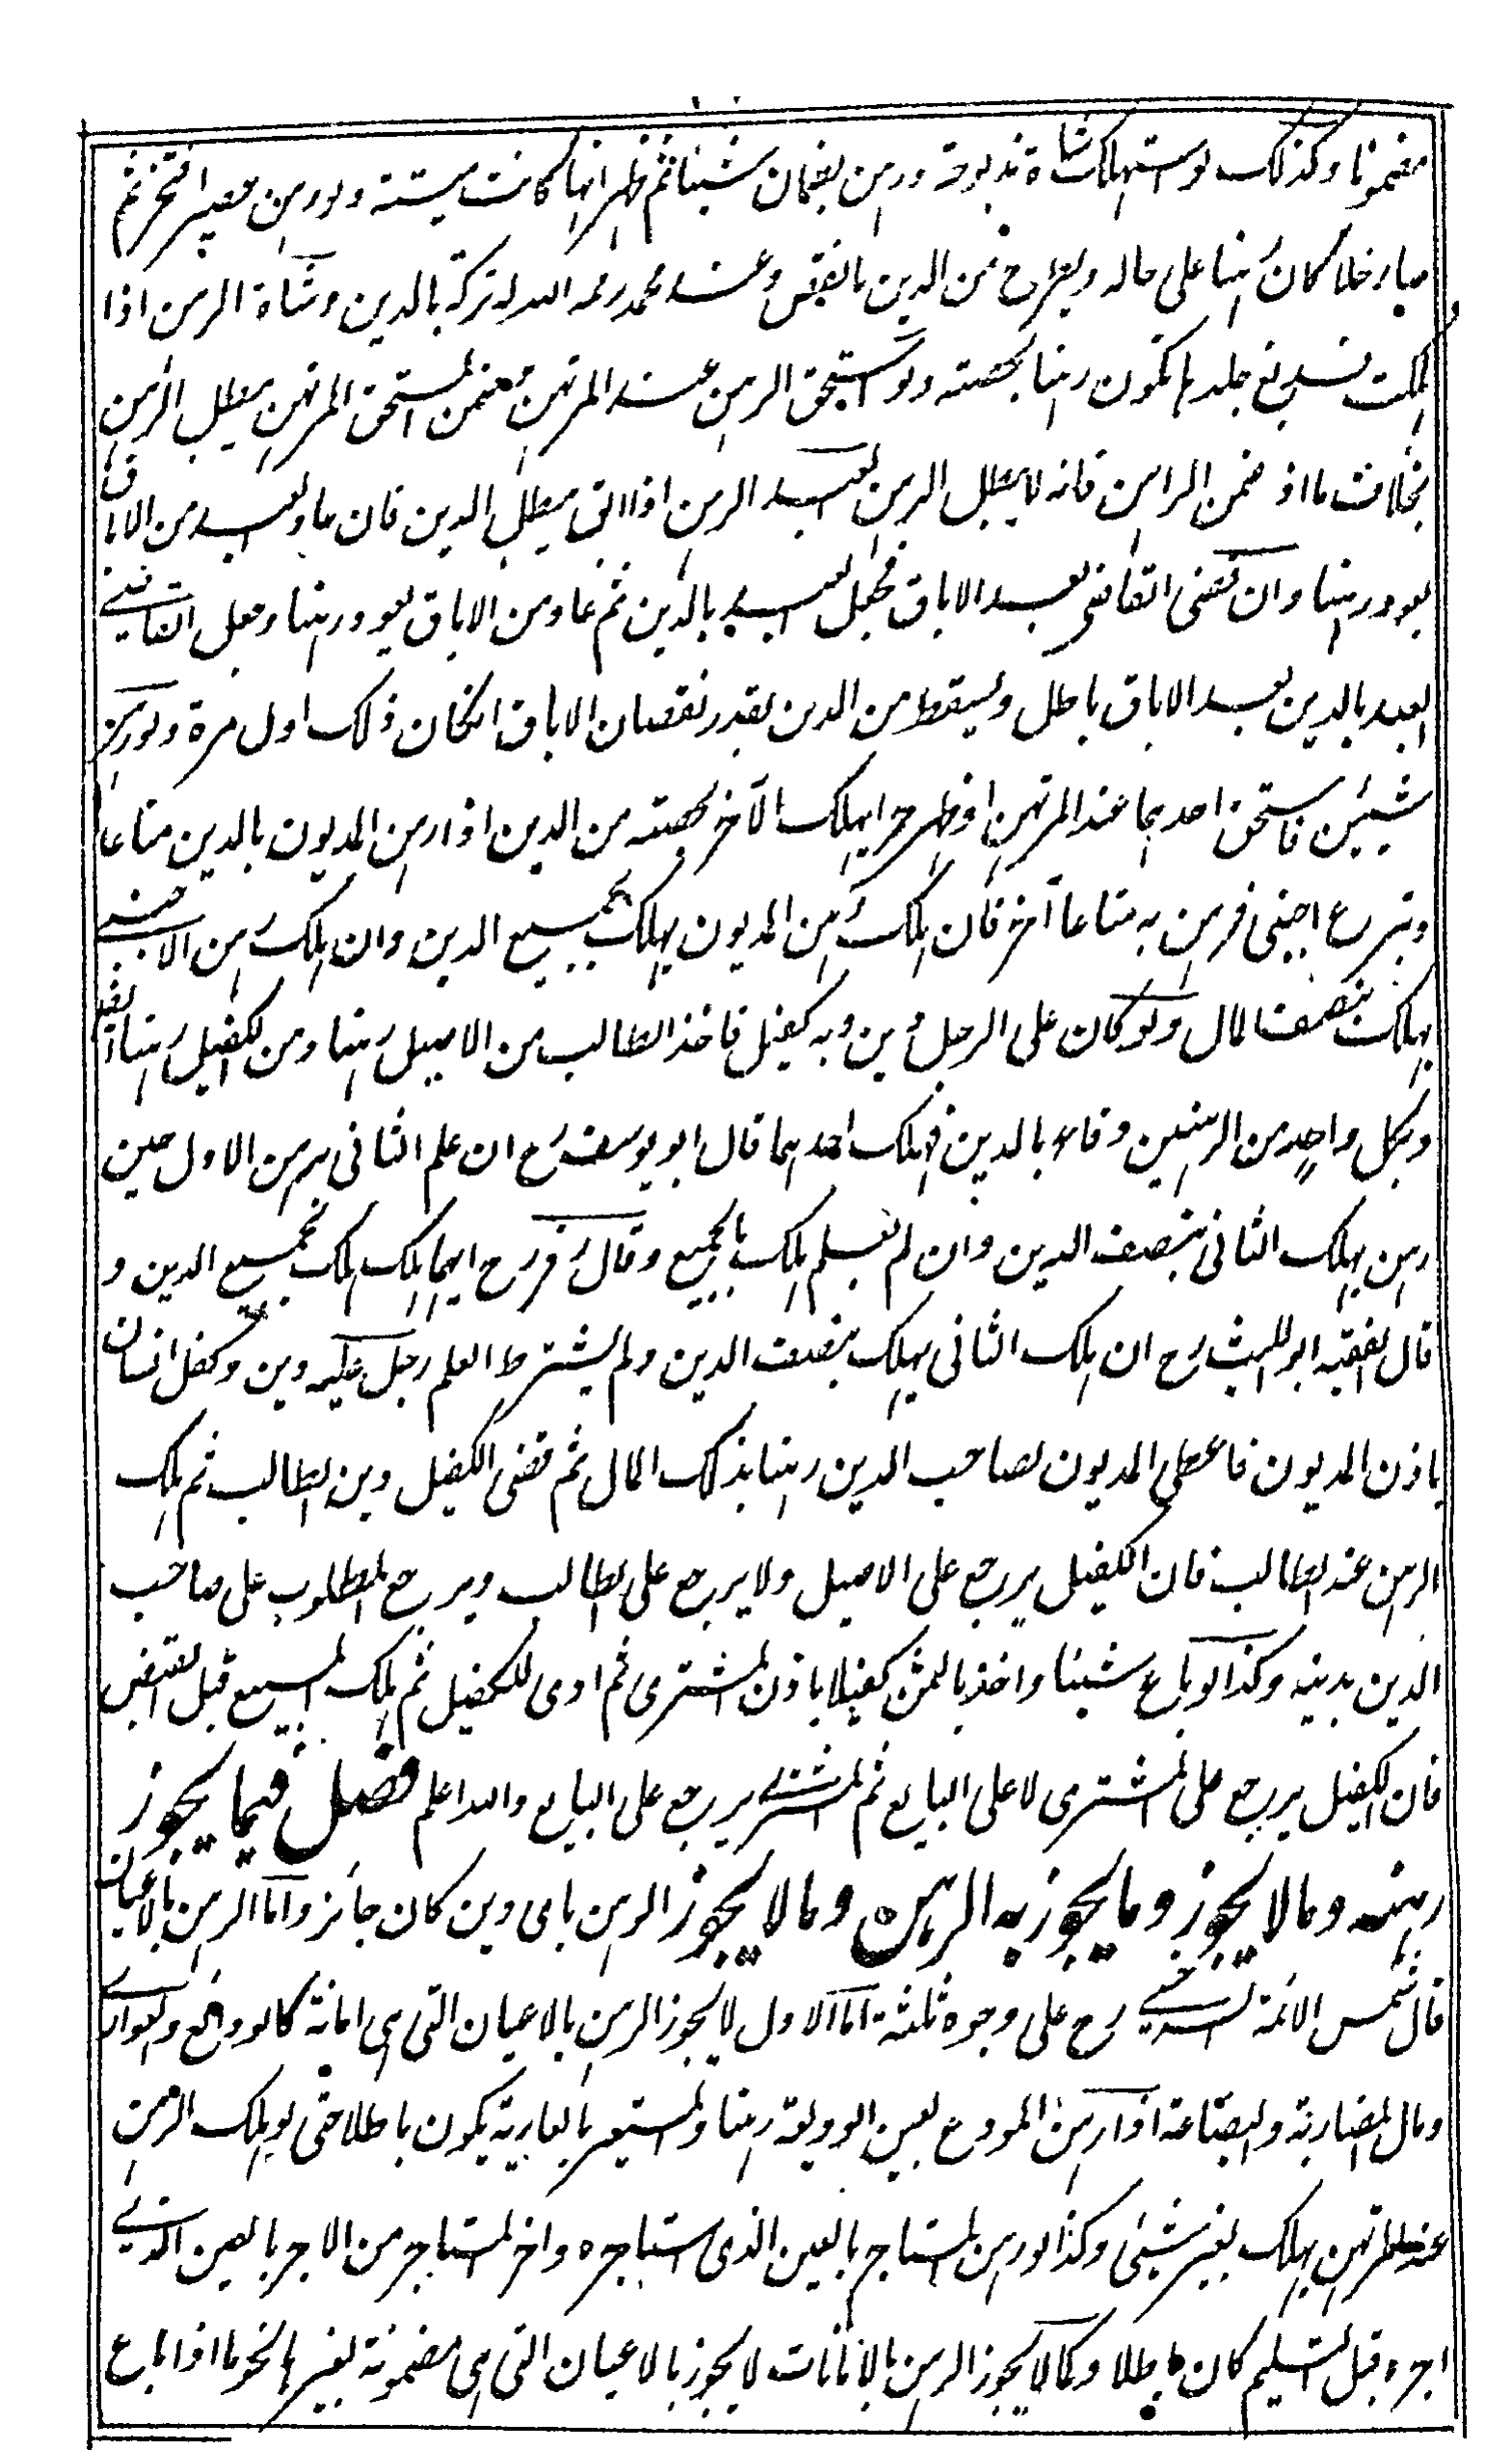 مضمونا وكذلك لو استهلك شاة مذبوحة ورهن بضمان شيئا ثم ظهر انها كانت ميتة ولو رهن عصيرا فتخمر ثم
صار خلا كان رهنا على حاله ويطرح من الدين ما نقص وعند محمد رحمه الله له تركه بالدين وشاة الرهن اذا
هلكت فدبغ جلدها يكون رهنا بحصته ولو استحق الرهن عند المرتهن فضمن المستحق المرتهن يبطل الرهن
بخلاف ما اذا ضمن الراهن فانه لا يبطل الرهن العبد الرهن اذا ابق يبطل الدين فان عاد العبد من الاباق
يعود رهنا وان قضى القاضى بعد الاباق فجعل العبد بالدين ثم عاد من الاباق يعود رهنا وجعل القاضى
العبد بالدين بعد الاباق باطل ويسقط من الدين بقدر نقصان الاباق انكان ذلك اول مرة ولو رهن
شيئين فاستحق احدهما عند المرتهن او ظهر حرا يهلك الآخر بحصته من الدين اذا رهن المديون بالدين متاعا
وتبرع اجنبى فرهن به متاعا آخر فان هلك رهن المديون يهلك بجميع الدين وان هلك رهن الاجنبى
يهلك بنصف المال ولو كان على الرجل دين وبه كفيل فاخذ الطالب من الاصيل رهنا ومن الكفيل رهنا ايضا
وبكل واحد من الرهنين وفاء بالدين فهلك احدهما قال ابو يوسف رح ان علم الثانى برهن الاول حين
رهن يهلك الثانى بنصف الدين وان لم يعلم هلك بالجميع وقال زفر رح ايهما هلك هلك بجميع الدين و
قال الفقيه ابو الليث رح ان هلك الثانى يهلك بنصف الدين ولم يشترط العلم رجل عليه دين وكفل انسان
باذن المديون فاعطى المديون لصاحب الدين رهنا بذلك المال ثم قضى الكفيل دين الطالب ثم هلك
الرهن عند الطالب فان الكفيل يرجع على الاصيل ولا يرجع على الطالب ويرجع المطلوب على صاحب
الدين بدينه وكذا لو باع شيئا واخذ بالثمن كفيلا باذن المشترى ثم ادى الكفيل ثم هلك المبيع قبل القبض
فان الكفيل يرجع على المشترى لا على البايع ثم المشترى يرجع على البايع والله اعلم فصل فيما يجوز
رهنه وما لا يجوز وما يجوز به الرهن وما لا يجوز الرهن باى دين كان جائز واما الرهن بالاعيان
قال شمس الائمة السرخسى رح على وجوه ثلثة اما الاول لا يجوز الرهن بالاعيان التى هى امانة كالودائع والعوارى
ومال المضاربة والبضاعة اذا رهن المودع بعين الوديعة رهنا والمستعير بالعارية يكون باطلا حتى لو هلك الرهن
عند المرتهن يهلك بغير شيئ وكذا لو رهن المستاجر بالعين الذى استاجره واخذ المستاجر من الآجر بالعين الذى
اجره قبل التسليم كان باطلا وكما لا يجوز الرهن بالامانات لا يجوز بالاعيان التى هى مضمونة بغيرها نحو ما اذا باع